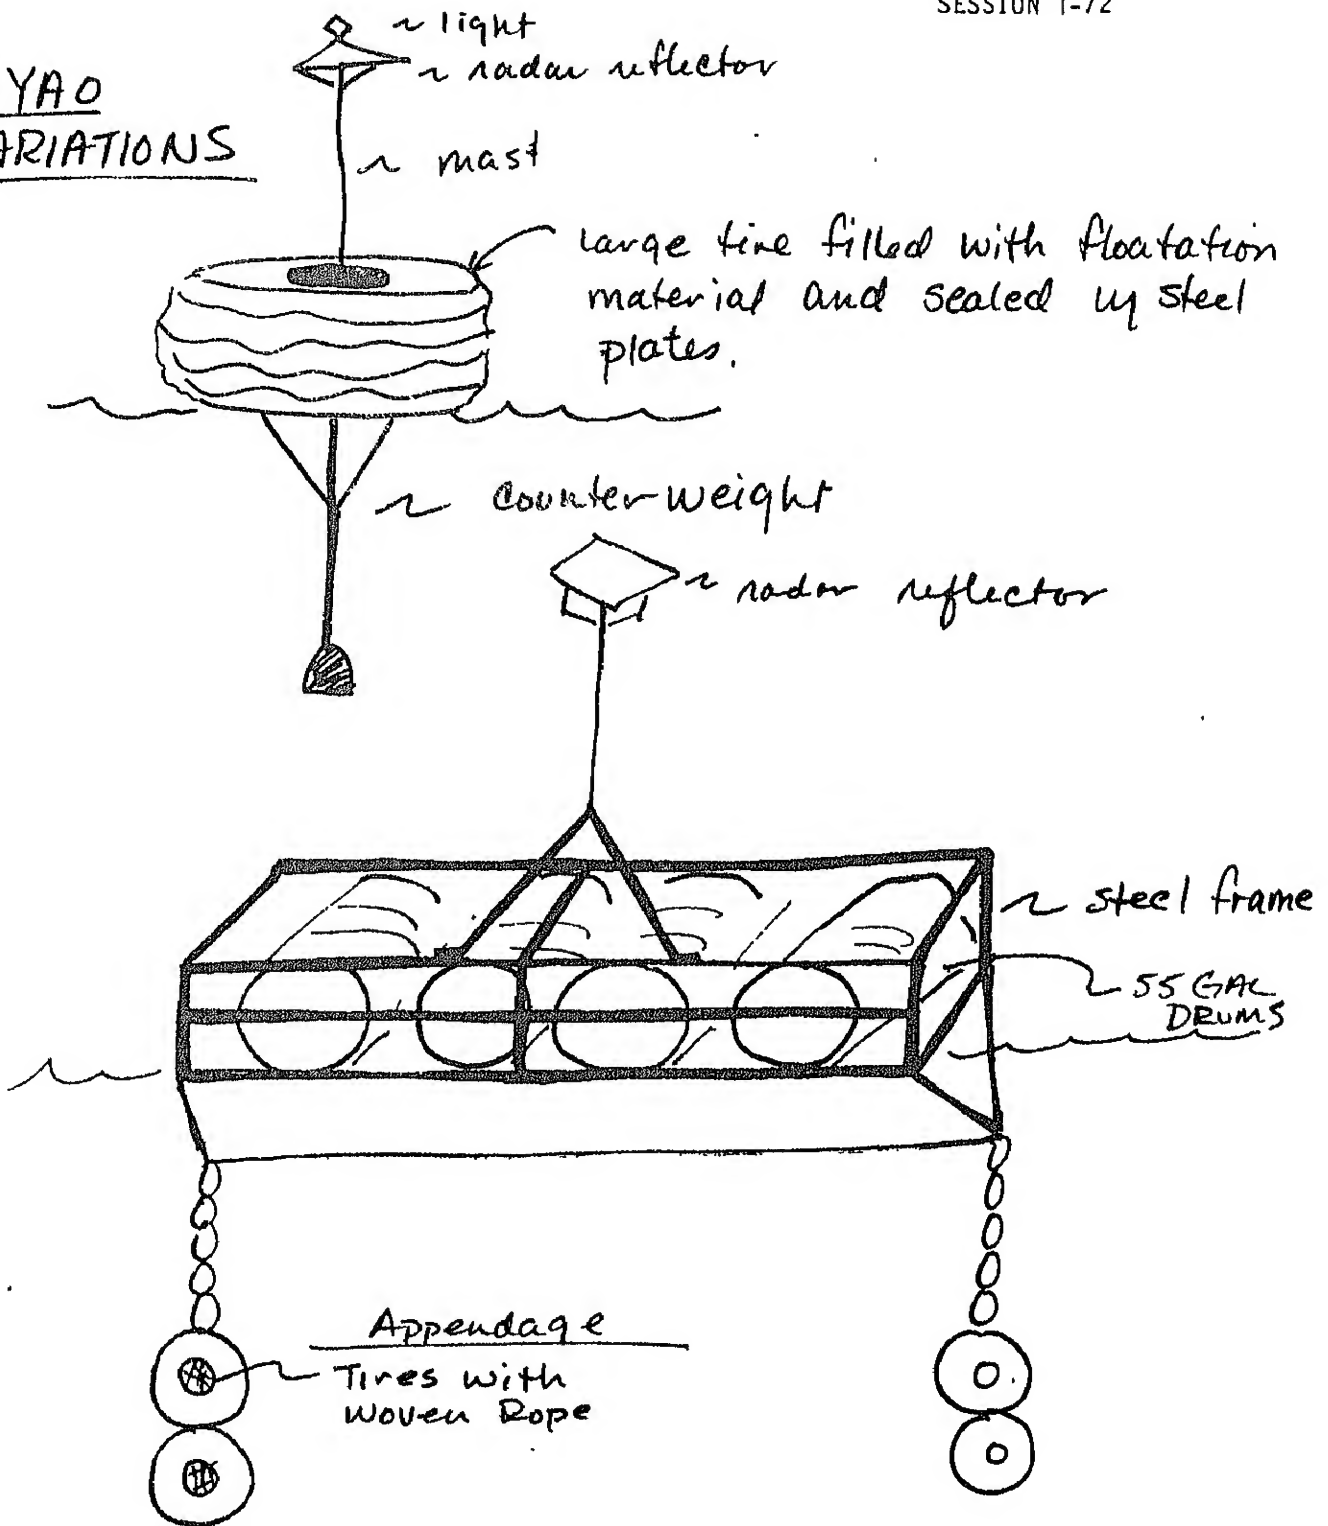 SESSION 1-72
~ light
~ radar reflector
YAO
ARIATIONS
~ mast
large tire filled with floatation
material and sealed w/ steel
plates.
~ counter weight
~ radar reflector
~ steel frame
55 GAL
DRUMS
Appendage
Tires with
Woven Rope